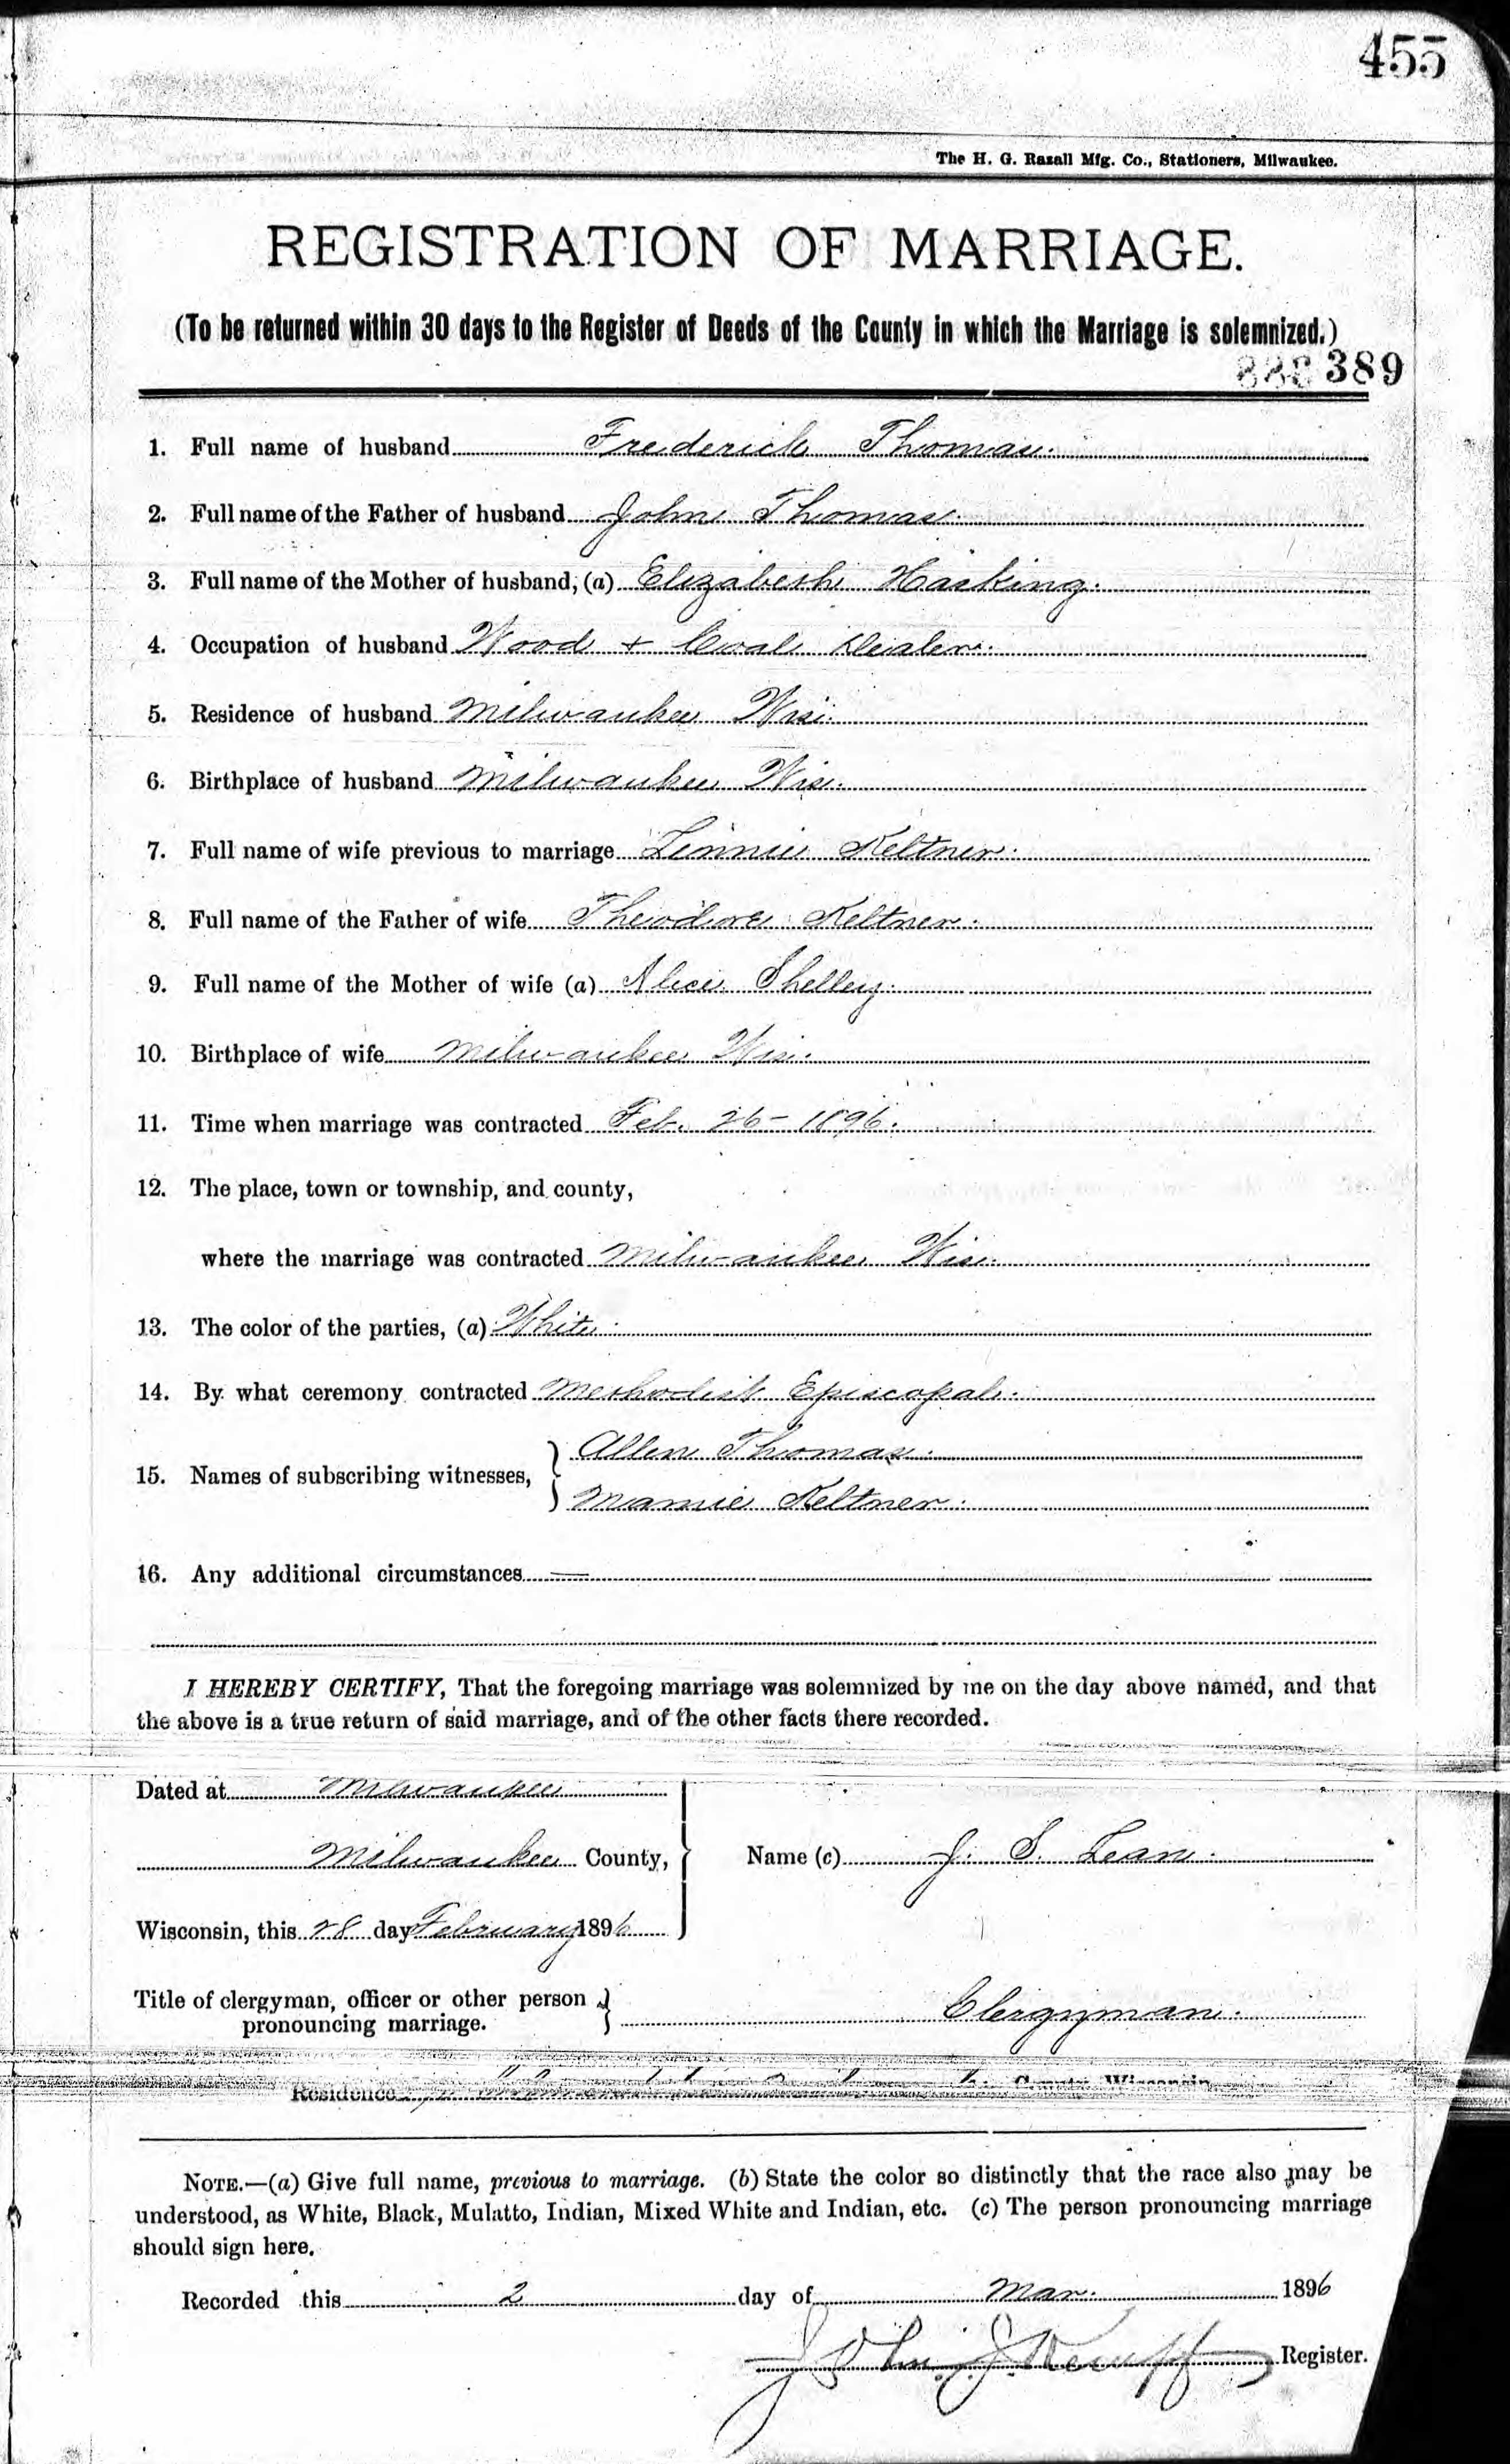 455
The H. G. Razall Mfg. Co., Stationers, Milwaukee.
REGISTRATION OF MARRIAGE.
(To be returned within 30 days to the Register of Deeds of the County in which the Marriage is solemnized.)
389
1. Full name of husband Frederick Thomas.
2. Full name of the Father of husband John Thomas.
3. Full name of the Mother of husband, (a) Elizabeth Hasking.
4. Occupation of husband Wood + Coal Dealer.
5. Residence of husband Milwaukee Wis.
6. Birthplace of husband Milwaukee Wis.
7. Full name of wife previous to marriage Linnie Keltner.
8. Full name of the Father of wife Theodore Keltner.
9. Full name of the Mother of wife (a) Alice Shelley.
10. Birthplace of wife Milwaukee Wis.
11. Time when marriage was contracted Feb. 26- 1896.
12. The place, town or township, and county,
where the marriage was contracted Milwaukee Wis.
13. The color of the parties, (a) White.
14. By what ceremony contracted Methodist Episcopal.
Allen Thomas.
15. Names of subscribing witnesses,
Mamie Keltner.
16. Any additional circumstances
I HEREBY CERTIFY, That the foregoing marriage was solemnized by me on the day above named, and that
the above is a true return of said marriage, and of the other facts there recorded.
Dated at Milwaukee
Milwaukee County,
Name (c) J. S. Lean.
Wisconsin, this 28 day February 1896
Title of clergyman, officer or other person
pronouncing marriage.
Clergyman.
Residence County, Wisconsin
NOTE.—(a) Give full name, previous to marriage. (b) State the color so distinctly that the race also may be
understood, as White, Black, Mulatto, Indian, Mixed White and Indian, etc. (c) The person pronouncing marriage
should sign here.
Recorded this 2 day of Mar. 1896
John J Kempf Register.